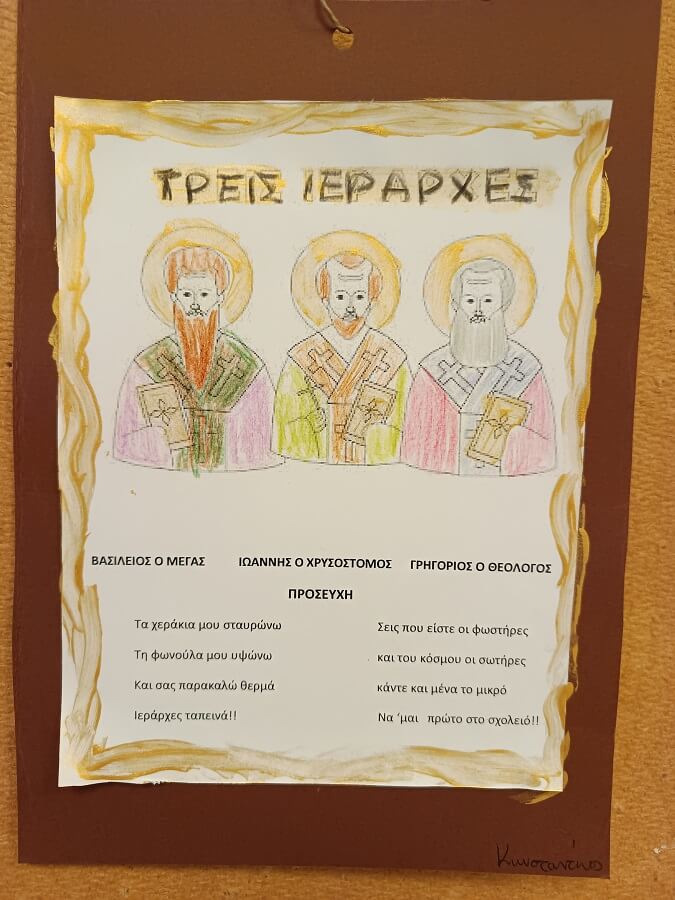 ΤΡΕΙΣ ΙΕΡΑΡΧΕΣ
ΒΑΣΙΛΕΙΟΣ Ο ΜΕΓΑΣ ΙΩΑΝΝΗΣ Ο ΧΡΥΣΟΣΤΟΜΟΣ ΓΡΗΓΟΡΙΟΣ Ο ΘΕΟΛΟΓΟΣ
ΠΡΟΣΕΥΧΗ
Τα χεράκια μου σταυρώνω
Τη φωνούλα μου υψώνω
Και σας παρακαλώ θερμά
Ιεράρχες ταπεινά!!
Σεις που είστε οι φωστήρες
και του κόσμου οι σωτήρες
κάντε και μένα το μικρό
Να ‘μαι πρώτο στο σχολειό!!